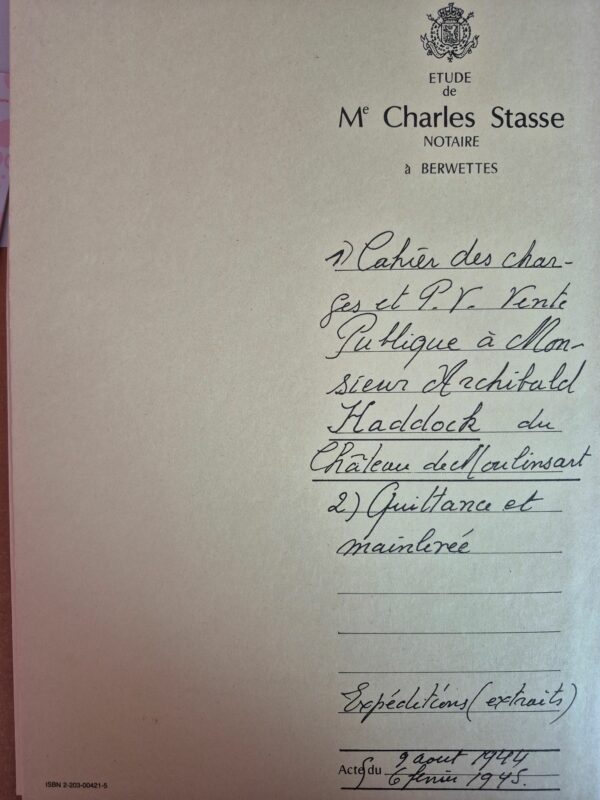 ETUDE
de
Me Charles Stasse
NOTAIRE
à BERWETTES
1) Cahier des char-
ges et P.V. Vente
Publique à Mon-
sieur Archibald
Haddock du
Château de Moulinsart
2) Quittance et
mainlevée
Expéditions (extraits)
Actes du 9 aout 1944
6 février 1945.
ISBN 2-203-00421-5